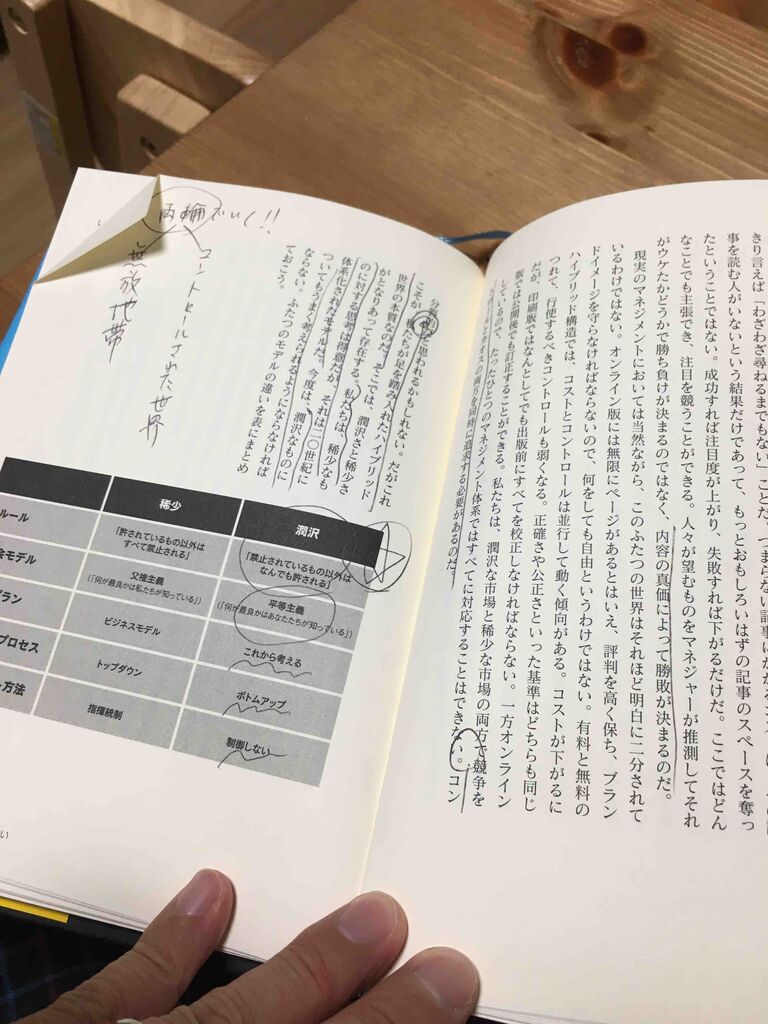 きり言えば「わざわざ尋ねるまでもない」ことだ。つまらない記事にかかる
事を読む人がいないという結果だけであって、もっとおもしろいはずの記事のスペースを奪っ
たということではない。成功すれば注目度が上がり、失敗すれば下がるだけだ。ここではどん
なことでも主張でき、注目を競うことができる。人々が望むものをマネジャーが推測してそれ
がウケたかどうかで勝ち負けが決まるのではなく、内容の真価によって勝敗が決まるのだ。
現実のマネジメントにおいては当然ながら、このふたつの世界はそれほど明白に二分されて
いるわけではない。オンライン版には無限にページがあるとはいえ、評判を高く保ち、ブラン
ドイメージを守らなければならないので、何をしても自由というわけではない。有料と無料の
ハイブリッド構造では、コストとコントロールは並行して動く傾向がある。コストが下がるに
つれて、行使するべきコントロールも弱くなる。正確さや公正さといった基準はどちらも同じ
だが、印刷版ではなんとしてでも出版前にすべてを校正しなければならない。一方オンライン
版では公開後でも訂正することができる。私たちは、潤沢な市場と稀少な市場の両方で競争を
しているので、たったひとつのマネジメント体系ではすべてに対応することはできない。コン
トロールとカオスの両方を同時に追求する必要があるのだ。
と思われるかもしれない。だがこれ
こそが、私たちが足を踏み入れたハイブリッド
世界の本質なのだ。そこでは、潤沢さと稀少さ
がとなりあって存在する。私たちは、稀少なも
のに対する思考は得意だが、それは二〇世紀に
体系化されたモデルだ。今度は、潤沢なものに
ついてもうまく考えられるようにならなければ
ならない。ふたつのモデルの違いを表にまとめ
ておこう。
両輪でいく!!
コントロールされた世界
無放地帯
稀少 潤沢
ルール 「許されているもの以外はすべて禁止される」 「禁止されているもの以外はなんでも許される」
会モデル 父権主義(「何が最良かは私たちが知っている」) 平等主義(「何が最良かはあなたたちが知っている」)
プラン ビジネスモデル これから考える
プロセス トップダウン ボトムアップ
方法 指揮統制 制御しない
い